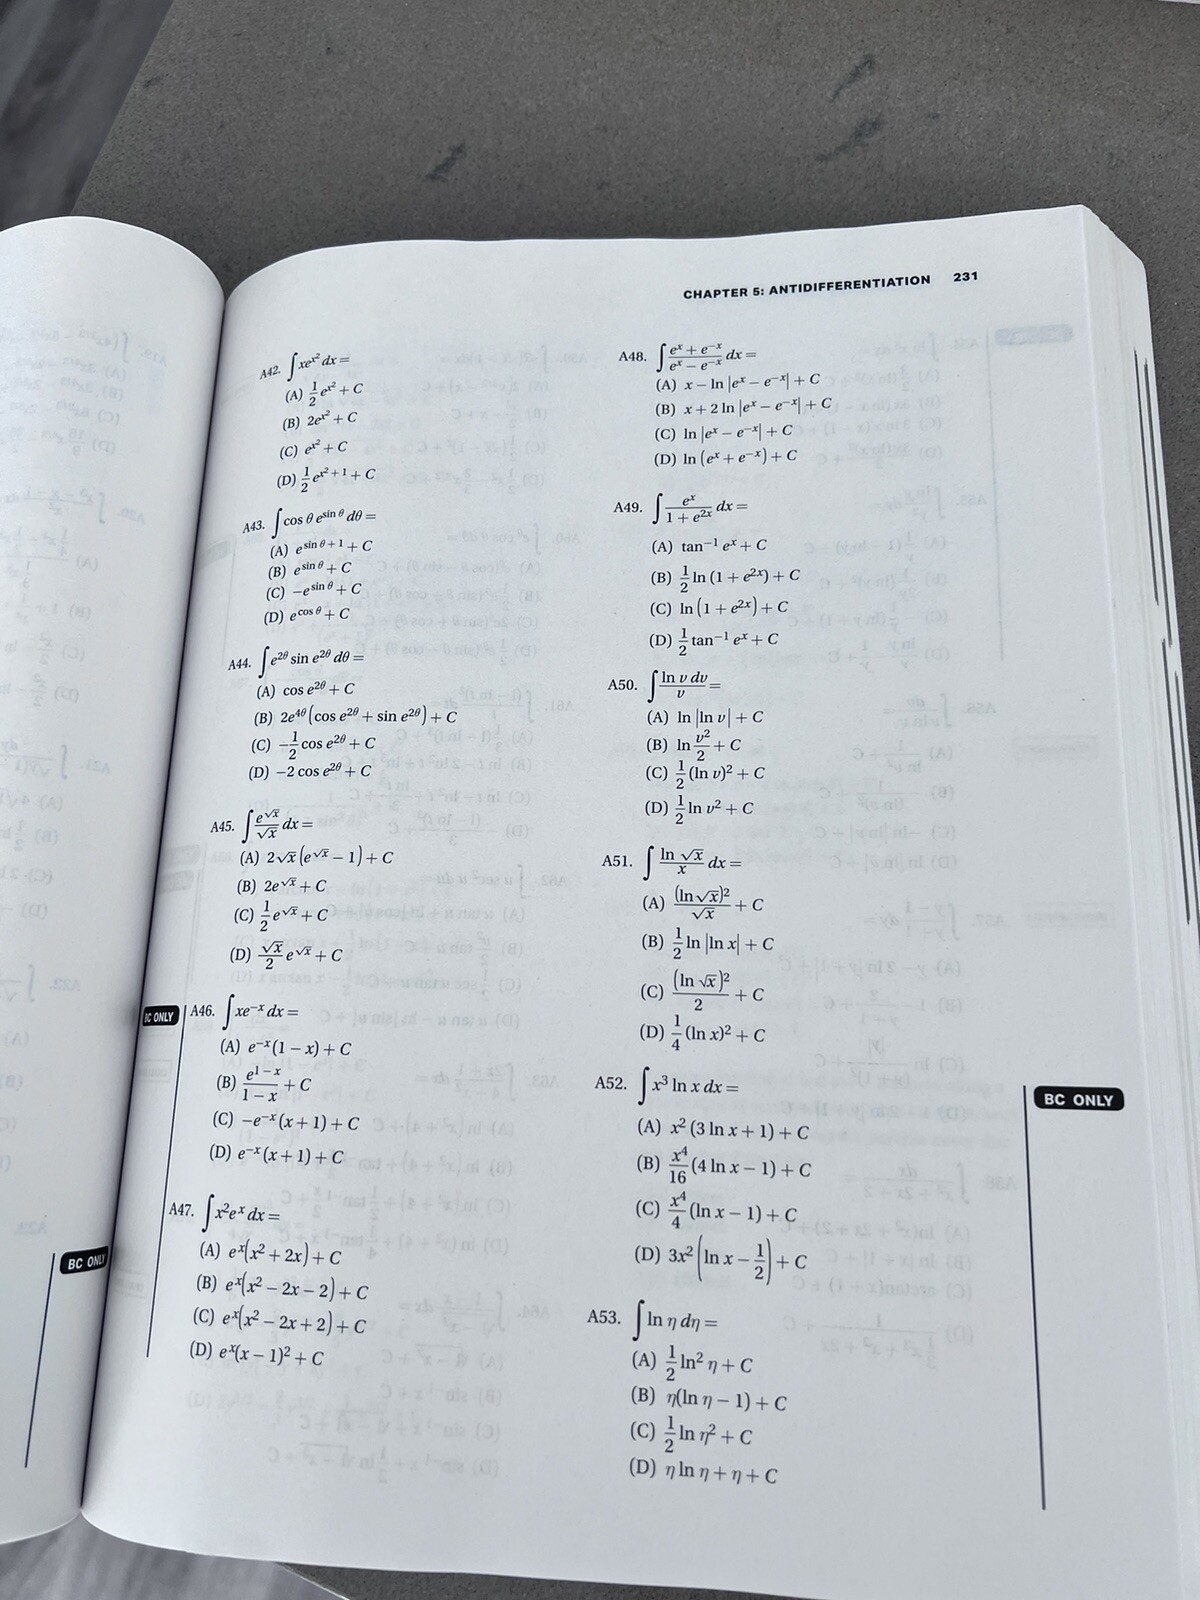 CHAPTER 5: ANTIDIFFERENTIATION 231
A42. ∫xe^{x²} dx =
(A) 1/2 e^{x²} + C
(B) 2e^{x²} + C
(C) e^{x²} + C
(D) 1/2 e^{x²+1} + C
A43. ∫cos θ e^{sin θ} dθ =
(A) e^{sin θ+1} + C
(B) e^{sin θ} + C
(C) −e^{sin θ} + C
(D) e^{cos θ} + C
A44. ∫e^{2θ} sin e^{2θ} dθ =
(A) cos e^{2θ} + C
(B) 2e^{4θ}(cos e^{2θ} + sin e^{2θ}) + C
(C) −1/2 cos e^{2θ} + C
(D) −2 cos e^{2θ} + C
A45. ∫e^{√x}/√x dx =
(A) 2√x(e^{√x} − 1) + C
(B) 2e^{√x} + C
(C) 1/2 e^{√x} + C
(D) √x/2 e^{√x} + C
BC ONLY
A46. ∫xe^{−x} dx =
(A) e^{−x}(1 − x) + C
(B) e^{1−x}/(1 − x) + C
(C) −e^{−x}(x + 1) + C
(D) e^{−x}(x + 1) + C
A47. ∫x²e^x dx =
(A) e^x(x² + 2x) + C
(B) e^x(x² − 2x − 2) + C
(C) e^x(x² − 2x + 2) + C
(D) e^x(x − 1)² + C
BC ONLY
A48. ∫(e^x + e^{−x})/(e^x − e^{−x}) dx =
(A) x − ln |e^x − e^{−x}| + C
(B) x + 2 ln |e^x − e^{−x}| + C
(C) ln |e^x − e^{−x}| + C
(D) ln (e^x + e^{−x}) + C
A49. ∫e^x/(1 + e^{2x}) dx =
(A) tan^{−1} e^x + C
(B) 1/2 ln (1 + e^{2x}) + C
(C) ln (1 + e^{2x}) + C
(D) 1/2 tan^{−1} e^x + C
A50. ∫ln v dv/v =
(A) ln |ln v| + C
(B) ln v²/2 + C
(C) 1/2 (ln v)² + C
(D) 1/2 ln v² + C
A51. ∫ln √x/x dx =
(A) (ln √x)²/√x + C
(B) 1/2 ln |ln x| + C
(C) (ln √x)²/2 + C
(D) 1/4 (ln x)² + C
A52. ∫x³ ln x dx =
(A) x² (3 ln x + 1) + C
(B) x⁴/16 (4 ln x − 1) + C
(C) x⁴/4 (ln x − 1) + C
(D) 3x² (ln x − 1/2) + C
BC ONLY
A53. ∫ln η dη =
(A) 1/2 ln² η + C
(B) η(ln η − 1) + C
(C) 1/2 ln η² + C
(D) η ln η + η + C